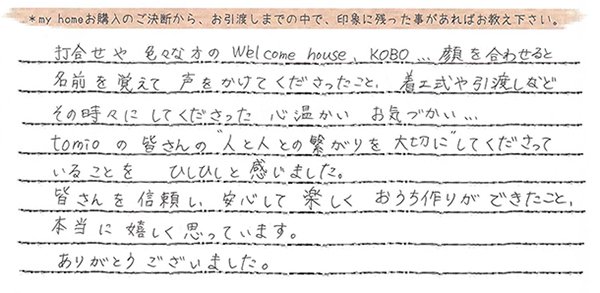 *my homeお購入のご決断から、お引渡しまでの中で、印象に残った事があればお教え下さい。
打合せや色々な方のWelcome house、KOBO…顔を合わせると
名前を覚えて声をかけてくださったこと、着工式や引渡しなど
その時々にしてくださった心温かいお気づかい…
tomioの皆さんの"人と人との繋がりを大切に"してくださって
いることをひしひしと感じました。
皆さんを信頼し、安心して楽しくおうち作りができたこと、
本当に嬉しく思っています。
ありがとうございました。